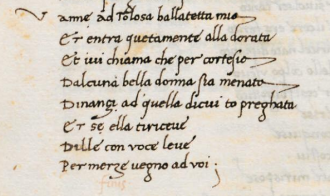 Vame ad tolosa ballatetta mia
Et entra quetamente alla dorata
Et ivi chiama che per cortesia
Dalcuna bella donna sia menata
Dinanzi ad quella dicui to preghata
Et se ella tiriceve
Dille con voce leve
Per merze vegno ad voi ;
finis